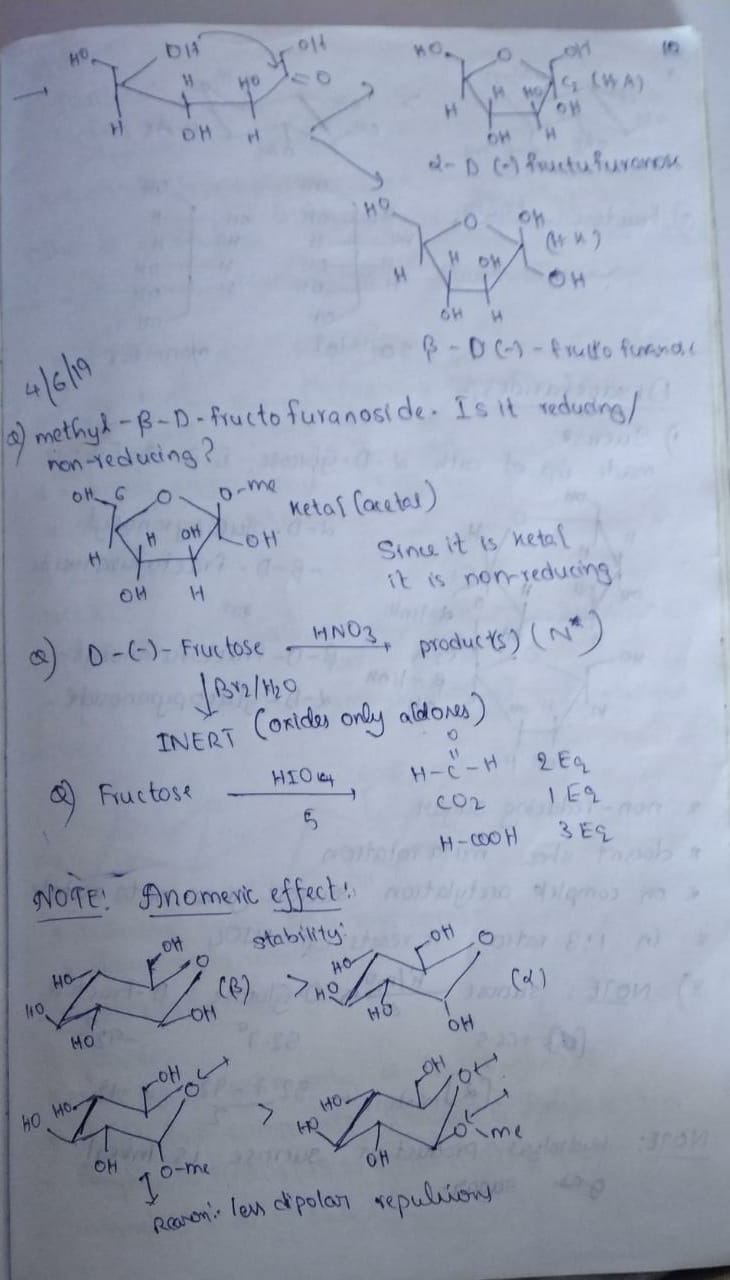 10
HO OH OH
H HO =O
H OH H
HO O OH
H HO C2 (HA)
H OH
OH H
α-D (-) fructofuranose
HO O OH
(HK)
H H OH OH
OH H
β-D(-)-fructofuranose
4/6/19
Q) methyl-β-D-fructofuranoside. Is it reducing/
non-reducing?
OH 6 O O-me
Ketal (acetal)
H H OH OH
Since it is ketal
it is non-reducing
OH H
Q) D-(-)-Fructose HNO3 product(s) (N*)
Br2/H2O
INERT (oxides only aldoses)
O
HIO4 H-C-H 2 Eq
Q) Fructose CO2 1 Eq
5
H-COOH 3 Eq
NOTE! Anomeric effect!
stability:
OH O OH O
HO HO (β) > HO HO (α)
OH
HO HO OH
OH O OH O
HO HO > HO HO
OH O-me OH O-me
Reason:- less dipolar repulsions